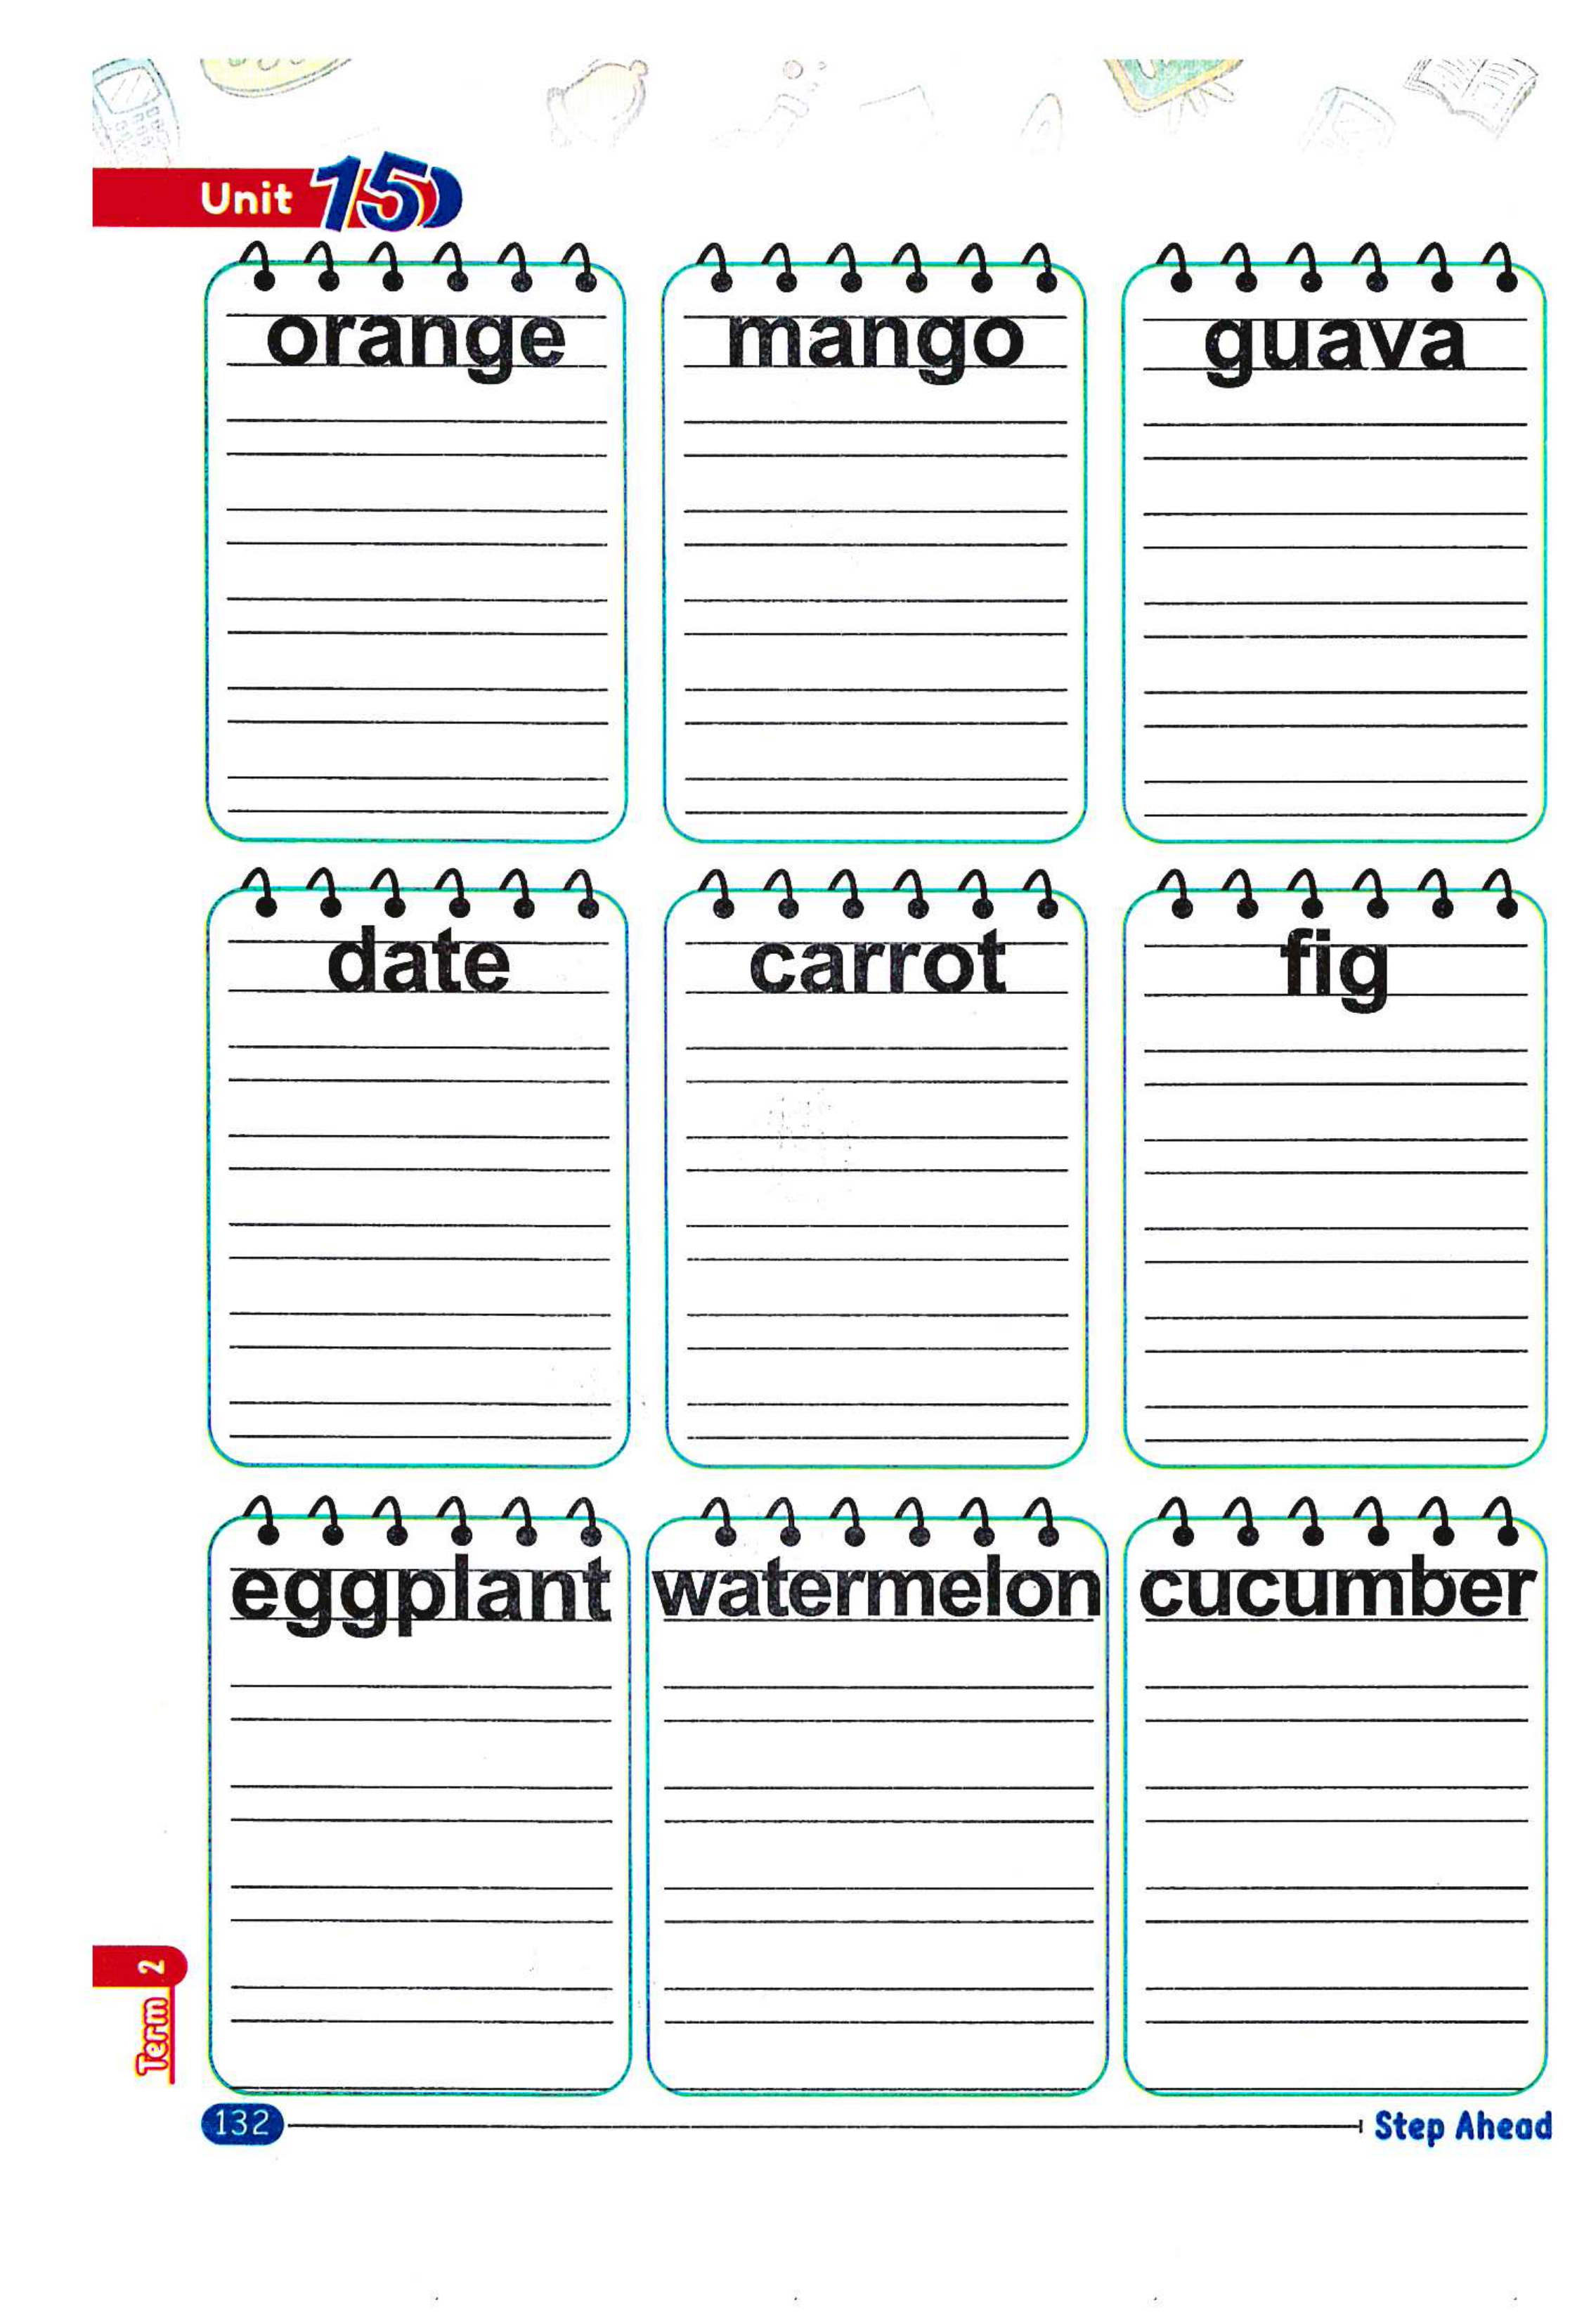 Unit 15
orange mango guava
date carrot fig
eggplant watermelon cucumber
Term 2
132 Step Ahead